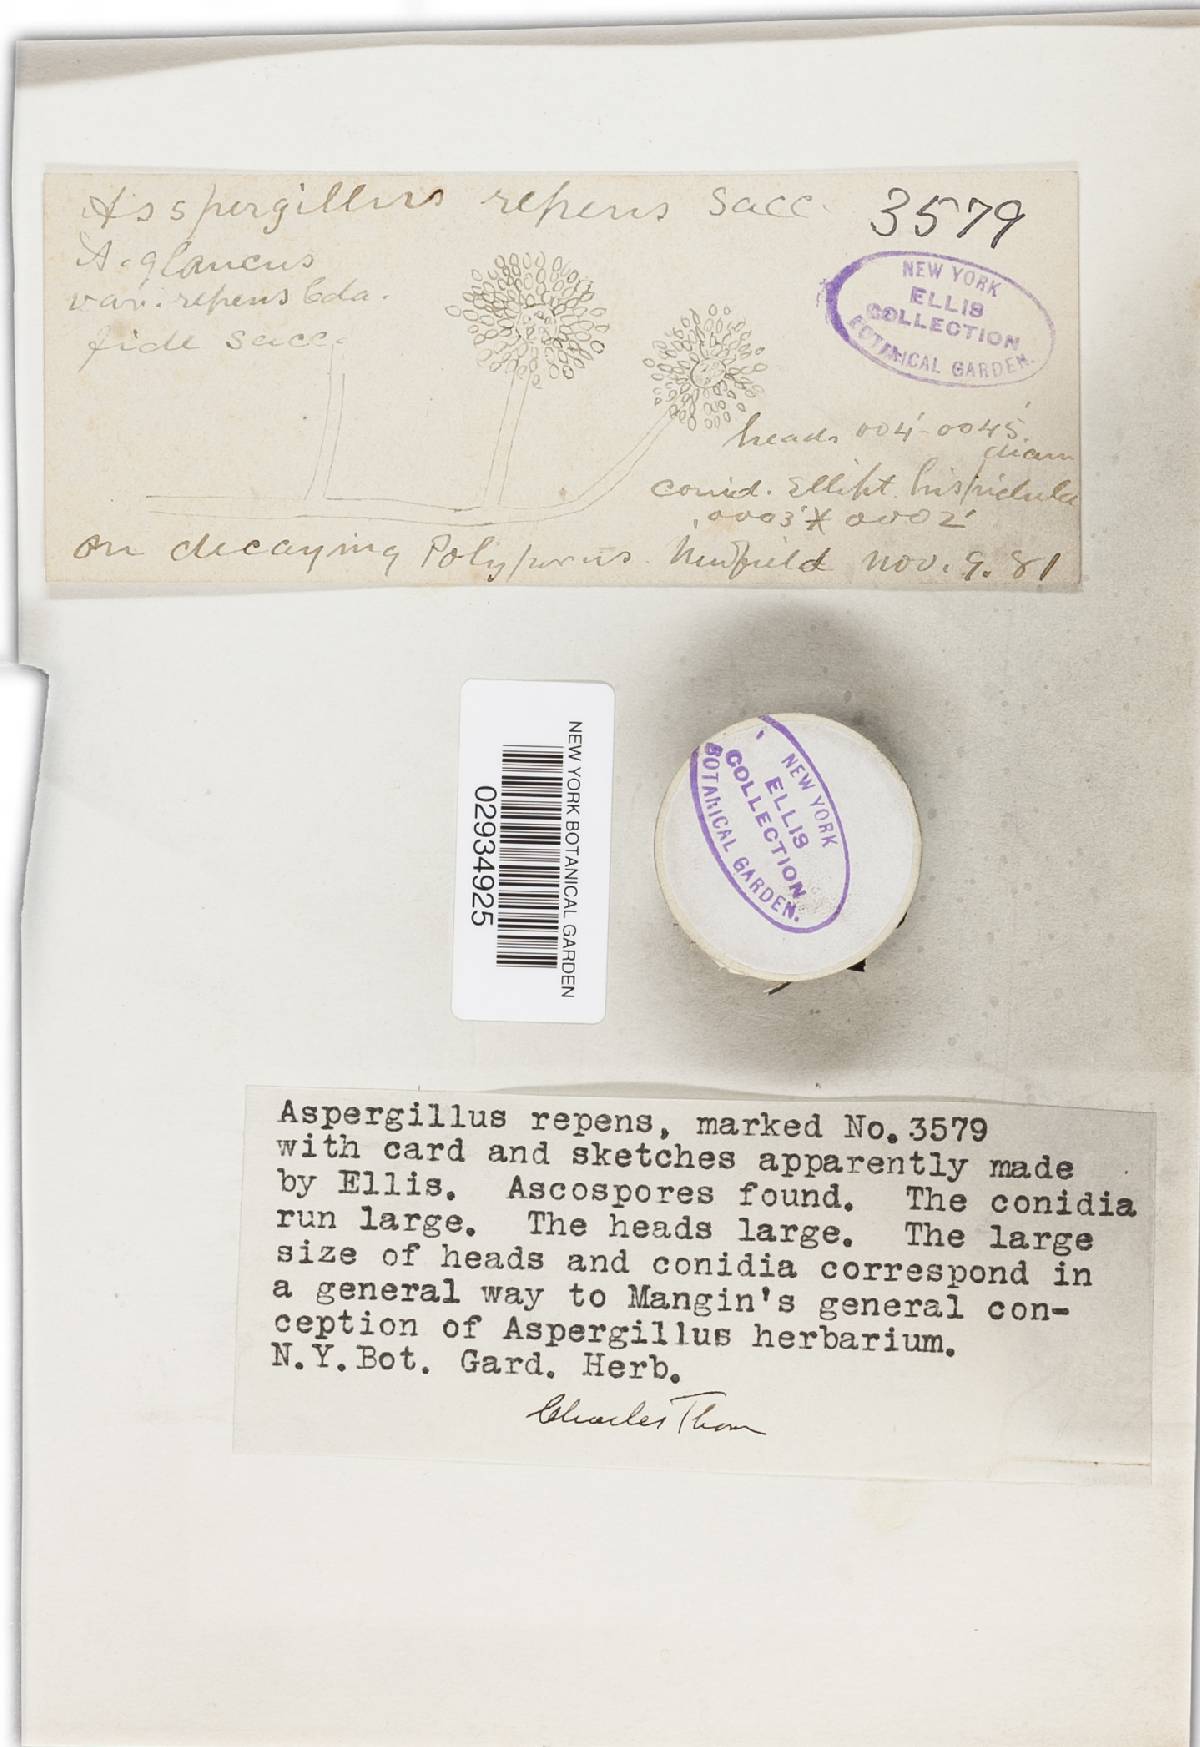 Asspergillus repens Sacc. 3579
A. glaucus
var. repens Cda.
fide Sacc.
NEW YORK
ELLIS
COLLECTION
BOTANICAL GARDEN.
heads 004'-0045'
diam
conid. Ellipt. hispidula
,0003' X 0002'
on decaying Polyporus. Newfield Nov. 9. 81
NEW YORK BOTANICAL GARDEN
02934925
NEW YORK
ELLIS
COLLECTION
BOTANICAL GARDEN.
Aspergillus repens, marked No.3579
with card and sketches apparently made
by Ellis. Ascospores found. The conidia
run large. The heads large. The large
size of heads and conidia correspond in
a general way to Mangin's general con-
ception of Aspergillus herbarium.
N.Y.Bot. Gard. Herb.
Charles Thom